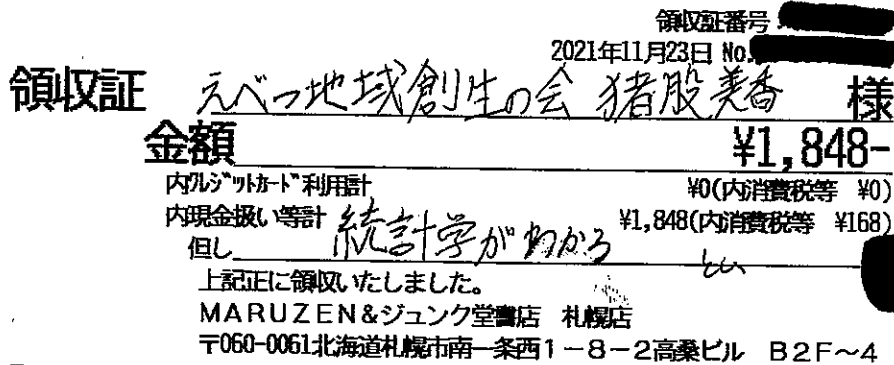 領収証番号
2021年11月23日 No.
領収証 えべつ地域創生の会 猪股美香 様
金額 ¥1,848-
内クレジットカード利用計 ¥0(内消費税等 ¥0)
内現金扱い等計 ¥1,848(内消費税等 ¥168)
但し 統計学がわかる
上記正に領収いたしました。
MARUZEN&ジュンク堂書店 札幌店
〒060-0061北海道札幌市南一条西1-8-2高桑ビル B2F~4